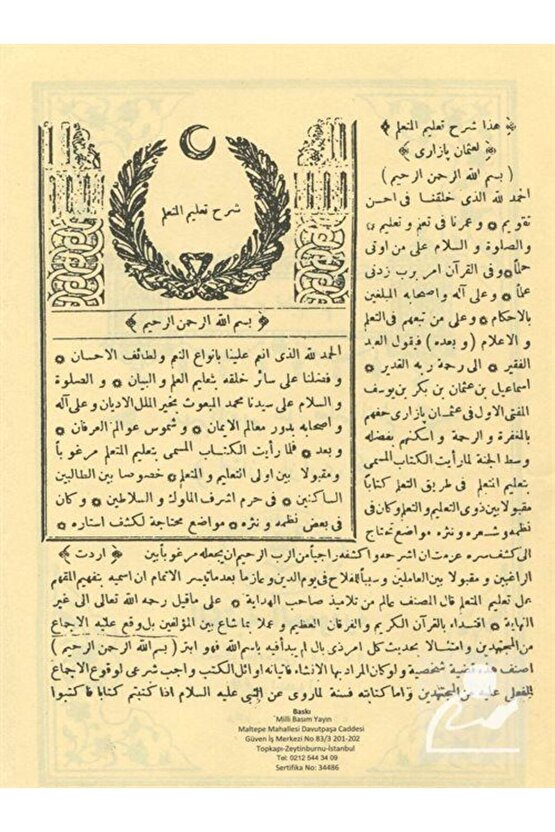 ﴿ هذا شرح تعليم المتعلم
لعثمان پازارى ﴾
( بسم الله الرحمن الرحيم )
الحمد لله الذى خلقنا فى احسن
تقويم ۞ و عمرنا فى تعلم و تعليم ۞
والصلوة و السلام على من اوتى
حلما ۞ وفى القرآن امر برب زدنى
علما ۞ وعلى آله واصحابه المبلغين
بالاحكام ۞ وعلى من تبعهم فى التعلم
و الاعلام ( و بعده ) فيقول العبد
الفقير ۞ الى رحمة ربه القدير ۞
اسماعيل بن عثمان بن بكر بن يوسف
المفتى الاول فى عثمان پازارى حفهم
بالمغفرة و الرحمة و اسكنهم بفضله
وسط الجنة لما رأيت الكتاب المسمى
بتعليم المتعلم فى طريق التعلم كتابا
مقبولا بين ذوى التعليم والتعلم وكان فى
نظمه و شعره و نثره مواضع تحتاج
شرح تعليم المتعلم
﴿ بسم الله الرحمن الرحيم ﴾
الحمد لله الذى انعم علينا بانواع النعم ولطائف الاحسان ۞
و فضلنا على سائر خلقه بتعليم العلم و البيان ۞ و الصلوة
و السلام على سيدنا محمد المبعوث بخير الملل الاديان و على آله
و اصحابه بدور معالم الايمان ۞ و شموس عوالم العرفان ۞
و بعد ۞ فلما رأيت الكتاب المسمى بتعليم المتعلم مرغوبا
ومقبولا بين اولى التعليم و المتعلم ۞ خصوصا بين الطالبين
الساكنين ۞ فى حرم اشرف الملوك و السلاطين ۞ وكان
فى بعض نظمه و نثره ۞ مواضع محتاجة لكشف استاره ۞
الى كشف سره عزمت ان اشرحه و اكشفه راجيا من الرب الرحيم ان يجعله مرغوبا بين ﴿ اردت ﴾
الراغبين و مقبولا بين العاملين و سببا للفلاح فى يوم الدين و عازما بعد ما تيسر الاتمام ان اسميه بتفهيم المتفهم
على تعليم المتعلم قال المصنف عالم من تلاميذ صاحب الهداية ۞ على ماقيل رحمه الله تعالى الى غير
النهاية ۞ اقتداء بالقرآن الكريم والفرقان العظيم و عملا بما شاع بين المؤلفين بل وقع عليه الاجماع
من المجتهدين و امتثالا بحديث كل امر ذى بال لم يبدأ فيه باسم الله فهو ابتر ( بسم الله الرحمن الرحيم )
اصنف قضية شخصية و لو كان المراد بها الانشاء فاتيانه اوائل الكتب واجب شرعى لوقوع الاجماع
الفعلى عليه من المجتهدين و اما كتابته فسنة لما روى عن النبى عليه السلام اذا كتبتم كتابا فاكتبوا
Baskı
Milli Basım Yayın
Maltepe Mahallesi Davutpaşa Caddesi
Güven İş Merkezi No 83/3 201-202
Topkapı-Zeytinburnu-İstanbul
Tel: 0212 544 34 09
Sertifika No: 34486